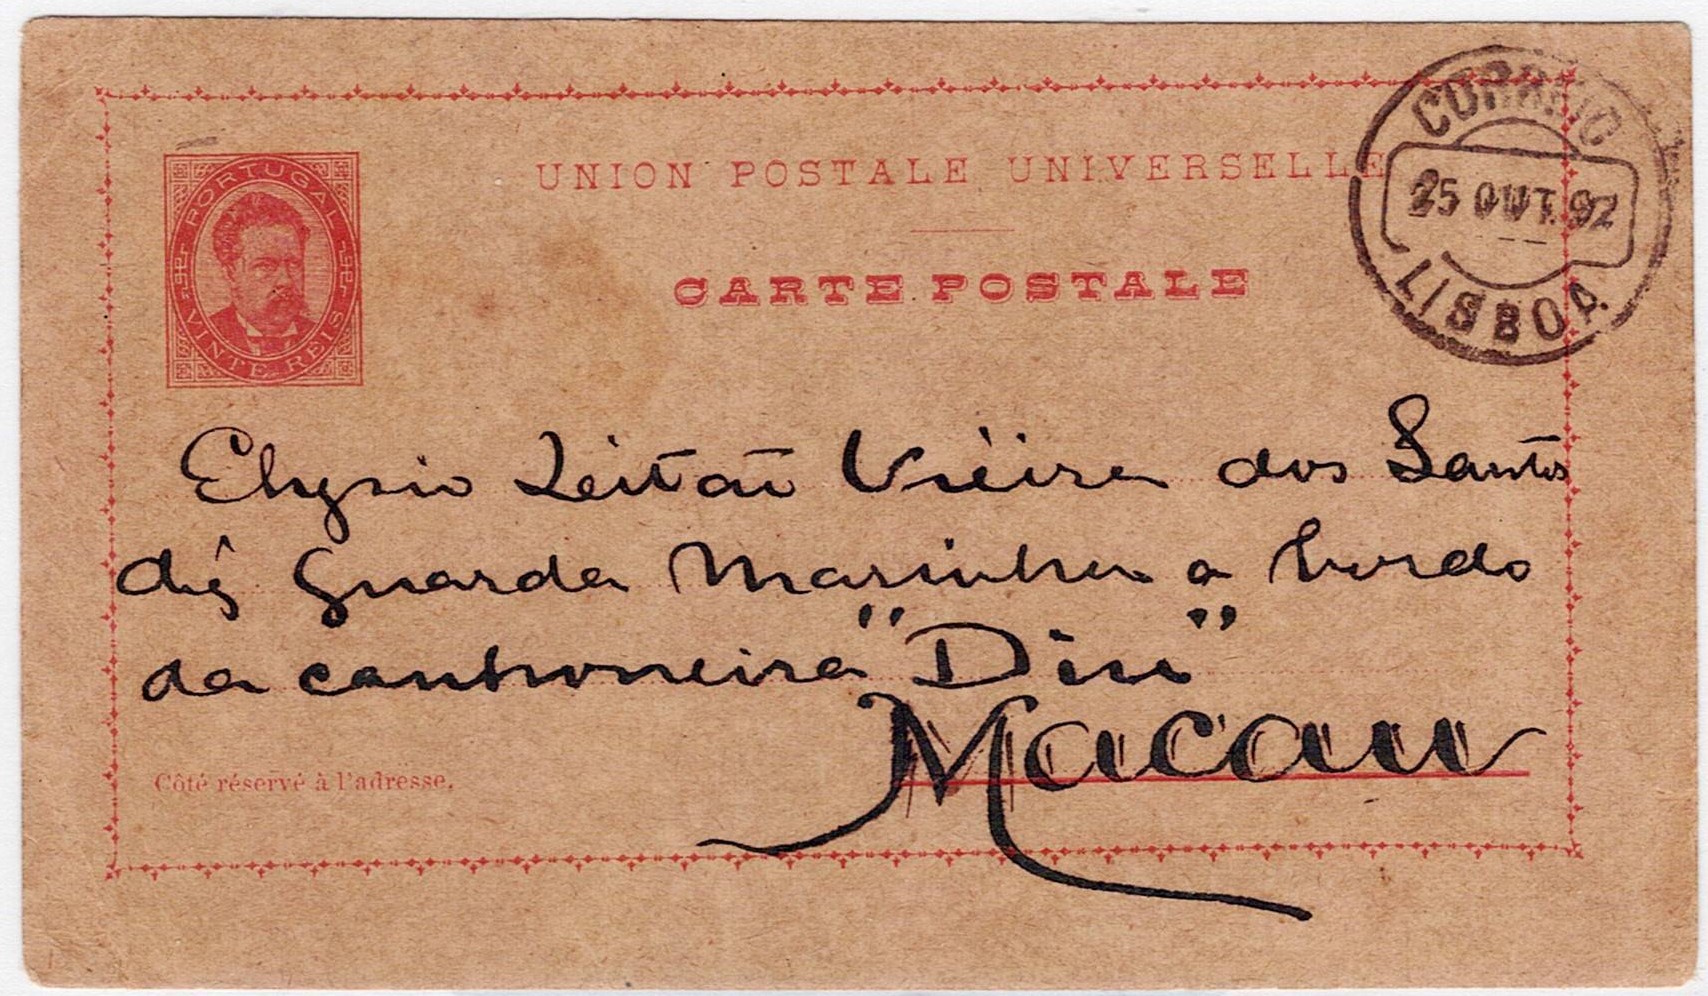 UNION POSTALE UNIVERSELLE
CARTE POSTALE
PORTUGAL
VINTE REIS
CORREIO
25 OUT. 92
LISBOA
Elysio Leitaõ Vieira dos Santos
Guarda Marinha a bordo
da canhoneira "Diu"
Macau
Côté réservé à l'adresse.